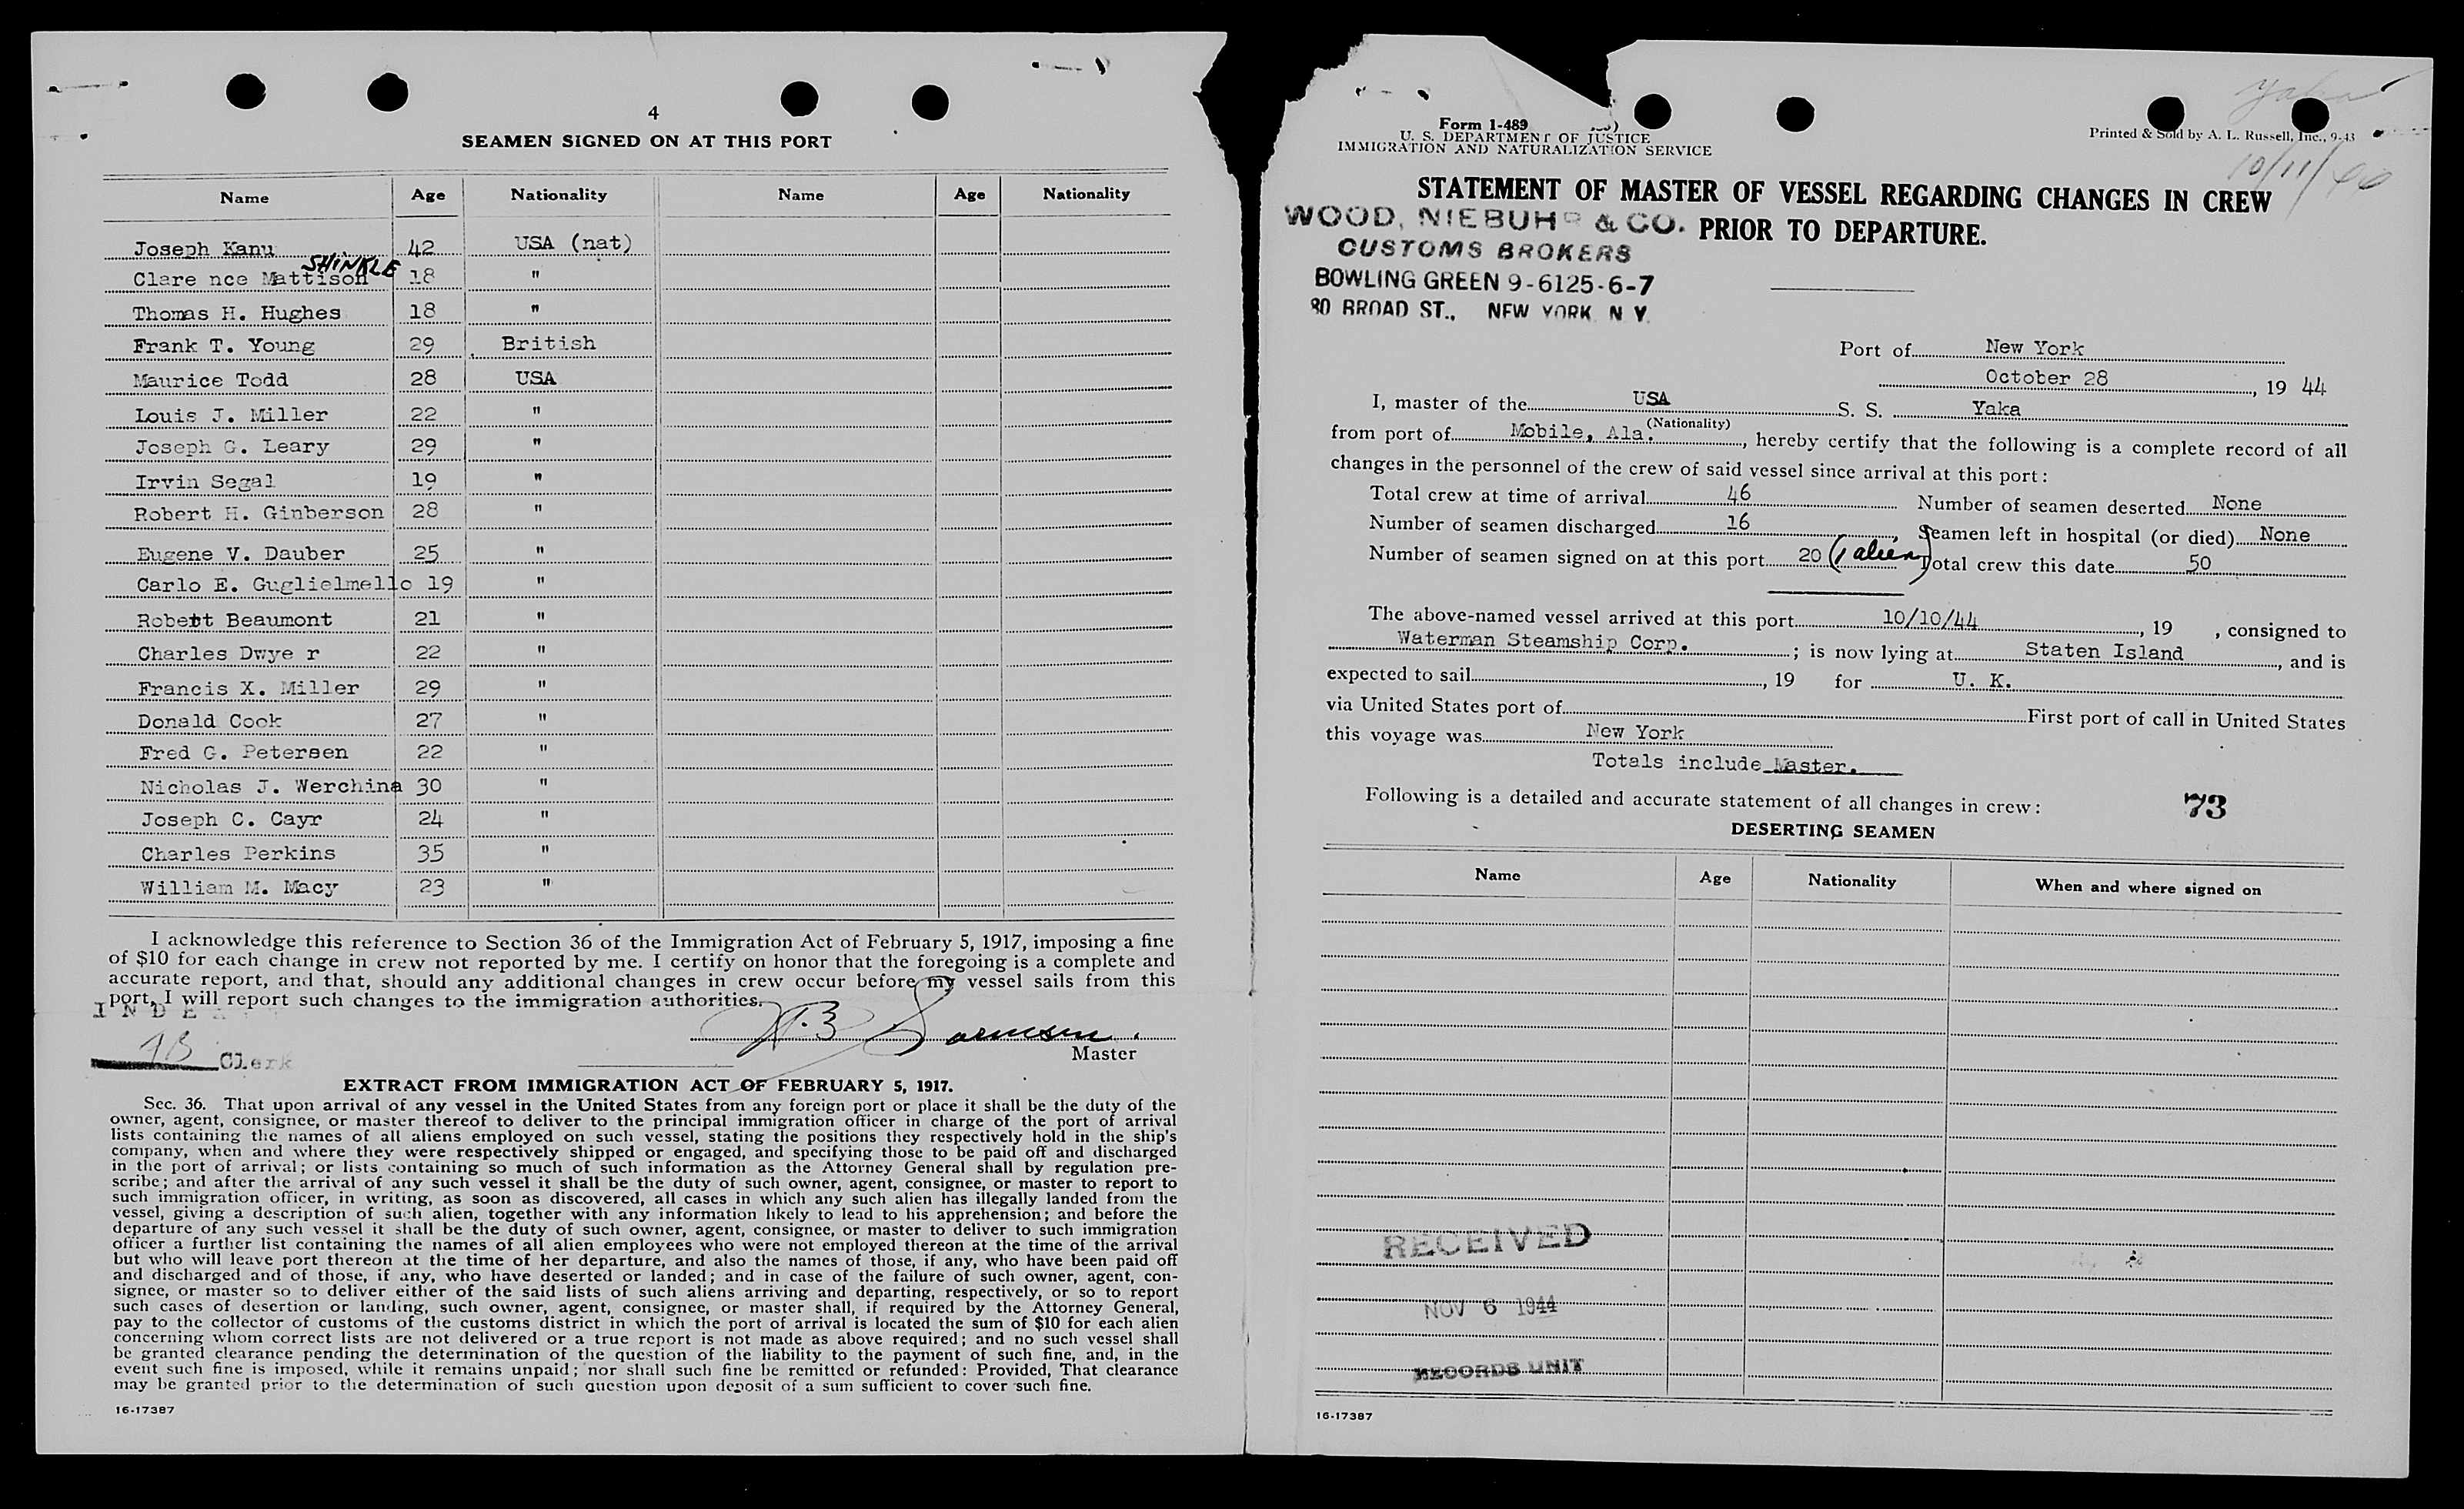 4
SEAMEN SIGNED ON AT THIS PORT
Name Age Nationality Name Age Nationality
Joseph Kanu 42 USA (nat)
SHINKLE
Clare nce Mattison 18 "
Thomas H. Hughes 18 "
Frank T. Young 29 British
Maurice Todd 28 USA
Louis J. Miller 22 "
Joseph G. Leary 29 "
Irvin Segal 19 "
Robert H. Ginberson 28 "
Eugene V. Dauber 25 "
Carlo E. Guglielmello 19 "
Robert Beaumont 21 "
Charles Dwye r 22 "
Francis X. Miller 29 "
Donald Cook 27 "
Fred G. Petersen 22 "
Nicholas J. Werchina 30 "
Joseph C. Cayr 24 "
Charles Perkins 35 "
William M. Macy 23 "
I acknowledge this reference to Section 36 of the Immigration Act of February 5, 1917, imposing a fine
of $10 for each change in crew not reported by me. I certify on honor that the foregoing is a complete and
accurate report, and that, should any additional changes in crew occur before my vessel sails from this
port, I will report such changes to the immigration authorities.
Clerk
Master
EXTRACT FROM IMMIGRATION ACT OF FEBRUARY 5, 1917.
Sec. 36. That upon arrival of any vessel in the United States from any foreign port or place it shall be the duty of the
owner, agent, consignee, or master thereof to deliver to the principal immigration officer in charge of the port of arrival
lists containing the names of all aliens employed on such vessel, stating the positions they respectively hold in the ship's
company, when and where they were respectively shipped or engaged, and specifying those to be paid off and discharged
in the port of arrival; or lists containing so much of such information as the Attorney General shall by regulation pre-
scribe; and after the arrival of any such vessel it shall be the duty of such owner, agent, consignee, or master to report to
such immigration officer, in writing, as soon as discovered, all cases in which any such alien has illegally landed from the
vessel, giving a description of such alien, together with any information likely to lead to his apprehension; and before the
departure of any such vessel it shall be the duty of such owner, agent, consignee, or master to deliver to such immigration
officer a further list containing the names of all alien employees who were not employed thereon at the time of the arrival
but who will leave port thereon at the time of her departure, and also the names of those, if any, who have been paid off
and discharged and of those, if any, who have deserted or landed; and in case of the failure of such owner, agent, con-
signee, or master so to deliver either of the said lists of such aliens arriving and departing, respectively, or so to report
such cases of desertion or landing, such owner, agent, consignee, or master shall, if required by the Attorney General,
pay to the collector of customs of the customs district in which the port of arrival is located the sum of $10 for each alien
concerning whom correct lists are not delivered or a true report is not made as above required; and no such vessel shall
be granted clearance pending the determination of the question of the liability to the payment of such fine, and, in the
event such fine is imposed, while it remains unpaid; nor shall such fine be remitted or refunded: Provided, That clearance
may be granted prior to the determination of such question upon deposit of a sum sufficient to cover such fine.
16-17387
Yaka
Form 1-489
U. S. DEPARTMENT OF JUSTICE
IMMIGRATION AND NATURALIZATION SERVICE
Printed & Sold by A. L. Russell, Inc., 9-43
10/11/44
STATEMENT OF MASTER OF VESSEL REGARDING CHANGES IN CREW
PRIOR TO DEPARTURE.
WOOD, NIEBUHR & CO.
CUSTOMS BROKERS
BOWLING GREEN 9-6125-6-7
80 BROAD ST., NEW YORK N Y.
Port of New York
October 28, 19 44
I, master of the USA S. S. Yaka
(Nationality)
from port of Mobile, Ala., hereby certify that the following is a complete record of all
changes in the personnel of the crew of said vessel since arrival at this port:
Total crew at time of arrival 46 Number of seamen deserted None
Number of seamen discharged 16, Seamen left in hospital (or died) None
Number of seamen signed on at this port 20 (1 alien) Total crew this date 50
The above-named vessel arrived at this port 10/10/44, 19 , consigned to
Waterman Steamship Corp. ; is now lying at Staten Island, and is
expected to sail, 19 for U. K.
via United States port of First port of call in United States
this voyage was New York
Totals include Master.
Following is a detailed and accurate statement of all changes in crew:
73
DESERTING SEAMEN
Name Age Nationality When and where signed on
RECEIVED
NOV 6 1944
RECORDS UNIT
16-17387